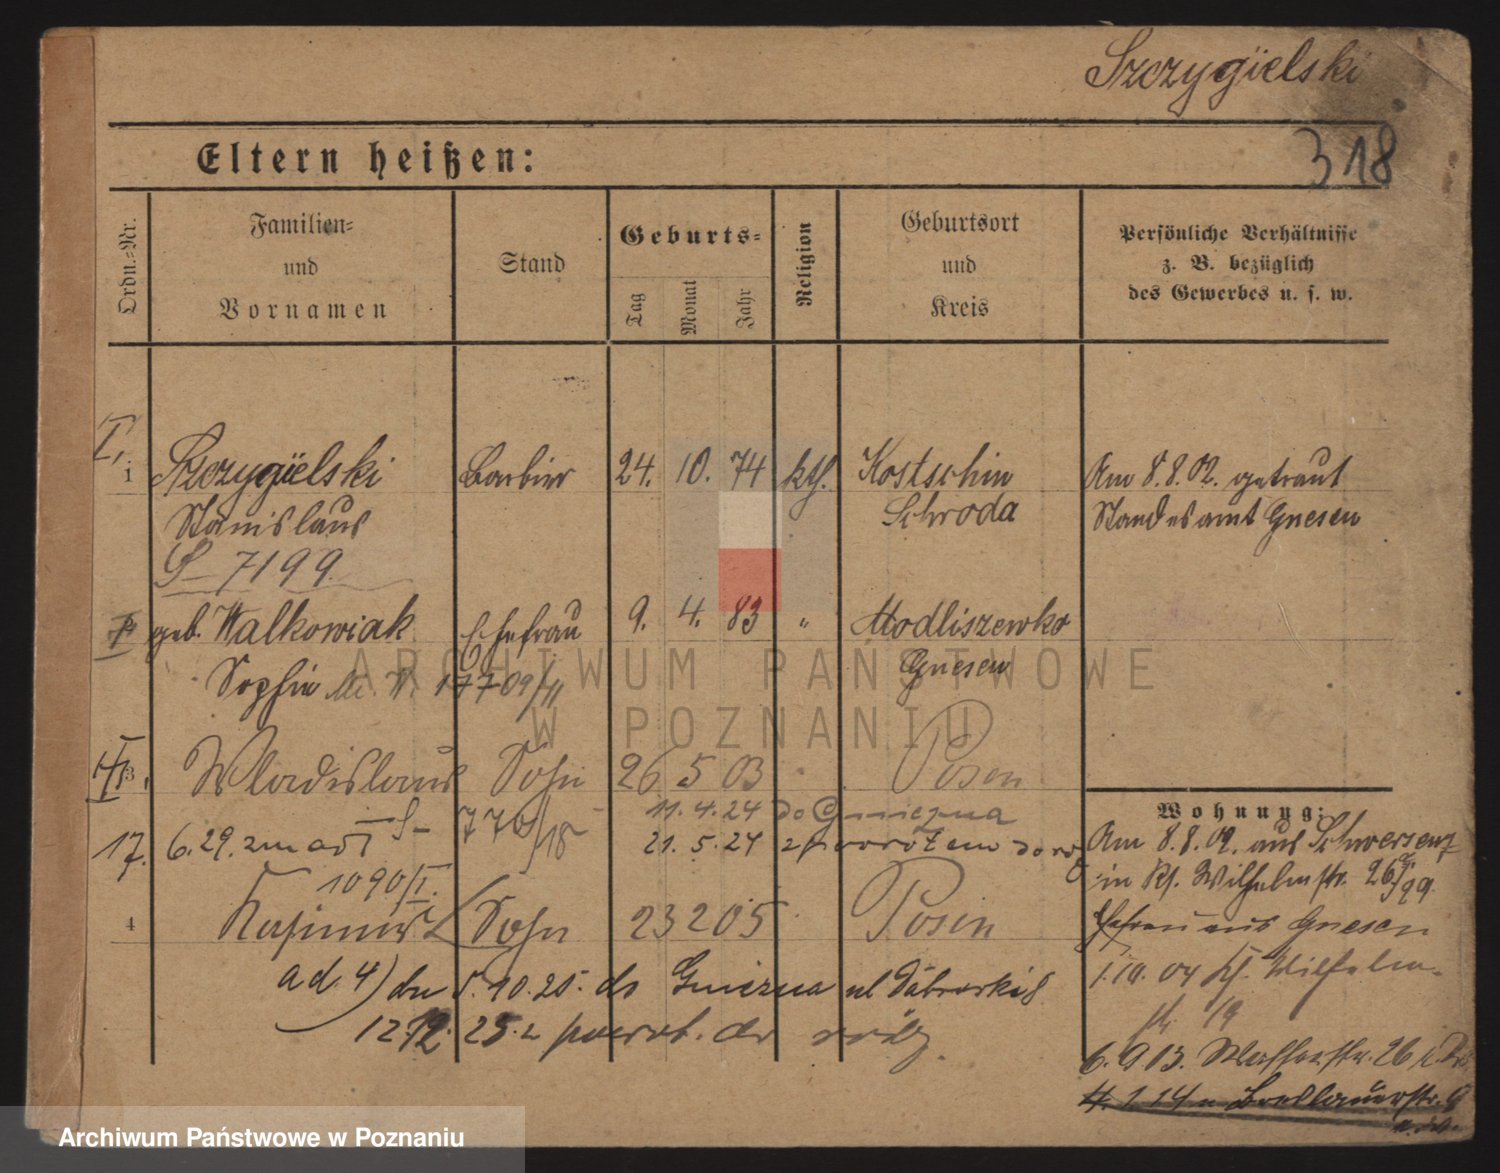 Szczygielski
318
Eltern heißen:
Ordn.-Nr.
Familien-
und
Vornamen
Stand
Geburts-
Tag
Monat
Jahr
Religion
Geburtsort
und
Kreis
Persönliche Verhältnisse
z. B. bezüglich
des Gewerbes u. s. w.
I.
1 Szczygielski Barbier 24. 10. 74 kth. Kostschin Am 8.8.02. getraut
Stanislaus Schroda Standesamt Gnesen
S- 7199
geb. Walkowiak Ehefrau 9. 4. 83 " Modliszewko
Sophie 17709/11 Gnesen
ARCHIWUM PAŃSTWOWE
W POZNANIU
3 Wladislaus Sohn 26 5 03 Posen
Wohnung:
776/18 11.4.24 do Gniezna
17. 6.29. zmarł 21.5.24 z powrotem
Am 8.8.02. aus Schwersenz
1090/I. in Wilhelmstr. 26
4 Kasimir Sohn 23 2 05 Posen
Ehefrau aus Gnesen
ad. 4) dn 5.10.25. do Gniezna ul Dąbrowki 8
1.10.04 Wilhelm-
str 19
12.12. 25. z powrot. do
6. 9 13. Wasserstr. 26
4. 1 14 Breslauerstr. 9
Archiwum Państwowe w Poznaniu